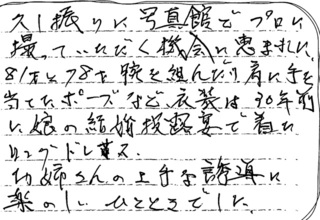 久し振りに写真館でプロに
撮っていただく機会に恵まれた。
81才と78才 腕を組んだり肩に手を
当てたポーズなど、衣装は30年前
に娘の結婚披露宴で着た
ロングドレス。
お姉さんの上手な誘導に
楽のしいひとときでした。